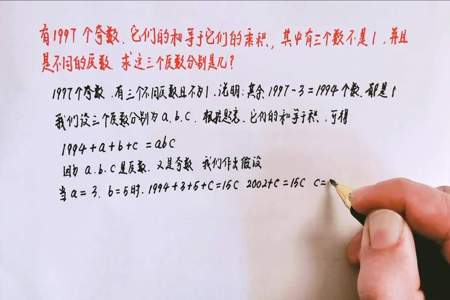 有1997个奇数、它们的和等于它们的乘积，其中有三个数不是1，并且
是不同的质数 求这三个质数分别是几？
1997个奇数、有三个不同质数且不为1、说明：其余1997-3=1994个数、都是1
我们设三个质数分别为a、b、c、根据题意、它们的和等于积、可得
1994+a+b+c=abc
因为a、b、c是质数、又是奇数 我们作出假设
当a=3、b=5时、1994+3+5+c=15c 2002+c=15c c=